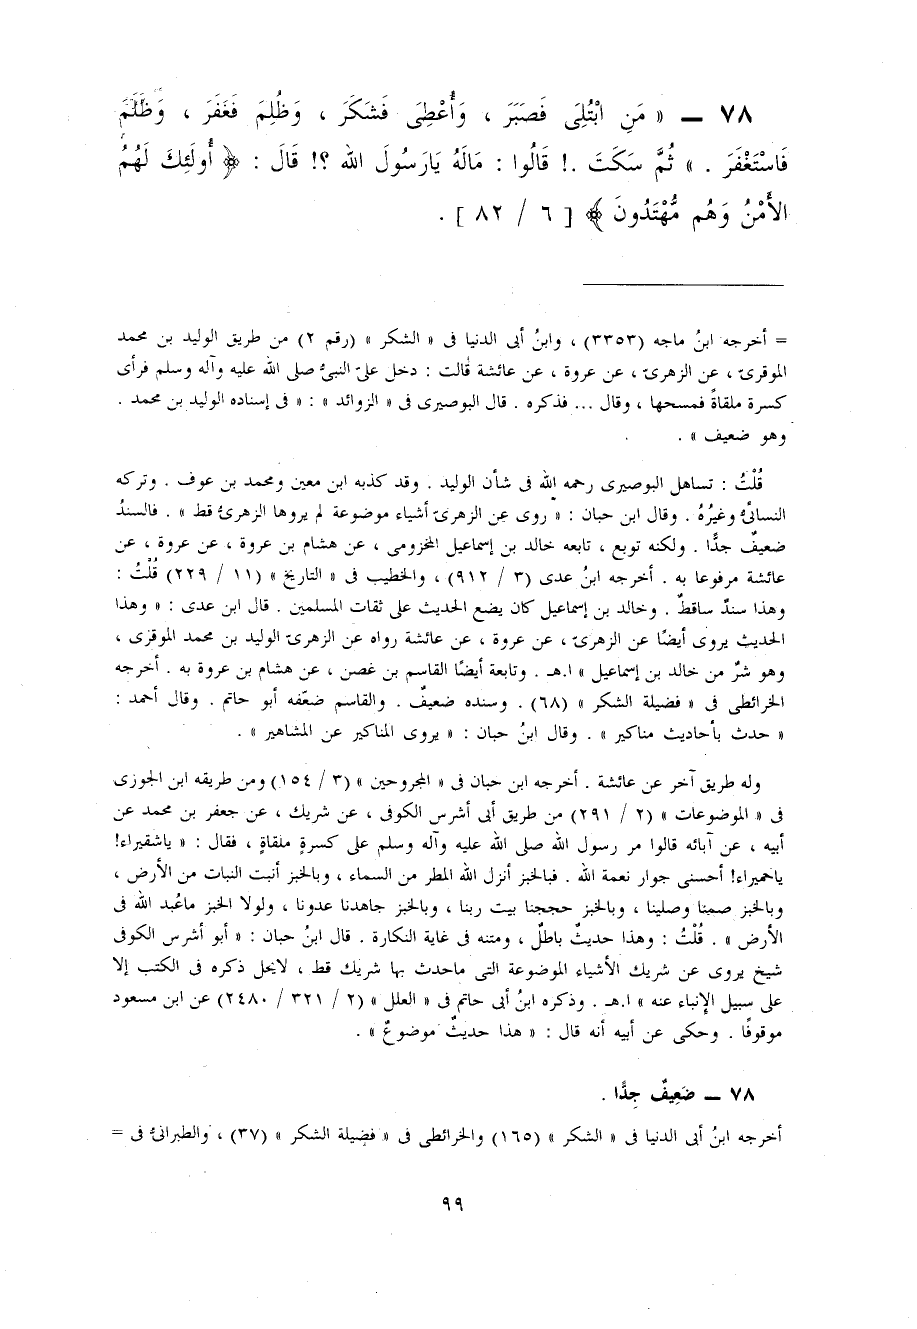 ٧٨ ــ « مَنِ ابْتُلِىَ فَصَبَرَ ، وَأُعْطِىَ فَشَكَرَ ، وَظُلِمَ فَغَفَرَ ، وَظَلَمَ
فَاسْتَغْفَرَ . » ثُمَّ سَكَتَ .! قَالُوا : مَالَهُ يَارَسُولَ اللهِ ؟! قَالَ : ﴿ أُولَئِكَ لَهُمُ
الأَمْنُ وَهُم مُّهْتَدُونَ ﴾ [ ٦ / ٨٢ ] .
= أخرجه ابنُ ماجه (٣٣٥٣) ، وابنُ أبى الدنيا فى « الشكر » (رقم ٢) من طريق الوليد بن محمد
الموقرىّ ، عن الزهرىّ ، عن عروة ، عن عائشة قالت : دخل علىّ النبىُّ صلى الله عليه وآله وسلم فرأى
كسرة ملقاةً فمسحها ، وقال ... فذكره . قال البوصيرى فى « الزوائد » : « فى إسناده الوليد بن محمد .
وهو ضعيف » .
قُلْتُ : تساهل البوصيرى رحمه الله فى شأن الوليد . وقد كذبه ابن معين ومحمد بن عوف . وتركه
النسائىُّ وغيرُهُ . وقال ابن حبان : « روى عن الزهرىّ أشياء موضوعة لم يروها الزهرىُّ قط » . فالسندُ
ضعيفٌ جدًّا . ولكنه توبع ، تابعه خالد بن إسماعيل المخزومى ، عن هشام بن عروة ، عن عروة ، عن
عائشة مرفوعا به . أخرجه ابنُ عدى (٣ / ٩١٢) ، والخطيب فى « التاريخ » (١١ / ٢٢٩) قُلْتُ :
وهذا سندٌ ساقطٌ . وخالد بن إسماعيل كان يضع الحديث على ثقات المسلمين . قال ابن عدى : « وهذا
الحديث يروى أيضًا عن الزهرىّ ، عن عروة ، عن عائشة رواه عن الزهرىّ الوليد بن محمد الموقرى ،
وهو شرٌّ من خالد بن إسماعيل » ا.هـ . وتابعة أيضًا القاسم بن غصن ، عن هشام بن عروة به . أخرجه
الخرائطى فى « فضيلة الشكر » (٦٨) . وسنده ضعيفٌ . والقاسم ضعّفه أبو حاتم . وقال أحمد :
« حدث بأحاديث مناكير » . وقال ابنُ حبان : « يروى المناكير عن المشاهير » .
وله طريق آخر عن عائشة . أخرجه ابن حبان فى « المجروحين » (٣ / ١٥٤) ومن طريقه ابن الجوزى
فى « الموضوعات » (٢ / ٢٩١) من طريق أبى أشرس الكوفى ، عن شريك ، عن جعفر بن محمد عن
أبيه ، عن آبائه قالوا مر رسول الله صلى الله عليه وآله وسلم على كسرةٍ ملقاةٍ ، فقال : « ياشقيراء!
ياحميراء! أحسنى جوار نعمة الله . فبالخبز أنزل الله المطر من السماء ، وبالخبز أنبت النبات من الأرض ،
وبالخبز صمنا وصلينا ، وبالخبز حججنا بيت ربنا ، وبالخبز جاهدنا عدونا ، ولولا الخبز ماعُبد الله فى
الأرض » . قُلْتُ : وهذا حديثٌ باطلٌ ، ومتنه فى غاية النكارة . قال ابنُ حبان : « أبو أشرس الكوفى
شيخ يروى عن شريك الأشياء الموضوعة التى ماحدث بها شريك قط ، لايحل ذكره فى الكتب إلا
على سبيل الإنباء عنه » ا.هـ . وذكره ابنُ أبى حاتم فى « العلل » (٢ / ٣٢١ / ٢٤٨٠) عن ابن مسعود
موقوفًا . وحكى عن أبيه أنه قال : « هذا حديثٌ موضوعٌ » .
٧٨ ــ ضَعِيفٌ جِدًّا .
أخرجه ابنُ أبى الدنيا فى « الشكر » (١٦٥) والخرائطى فى « فضيلة الشكر » (٣٧) ، والطبرانىُّ فى =
٩٩